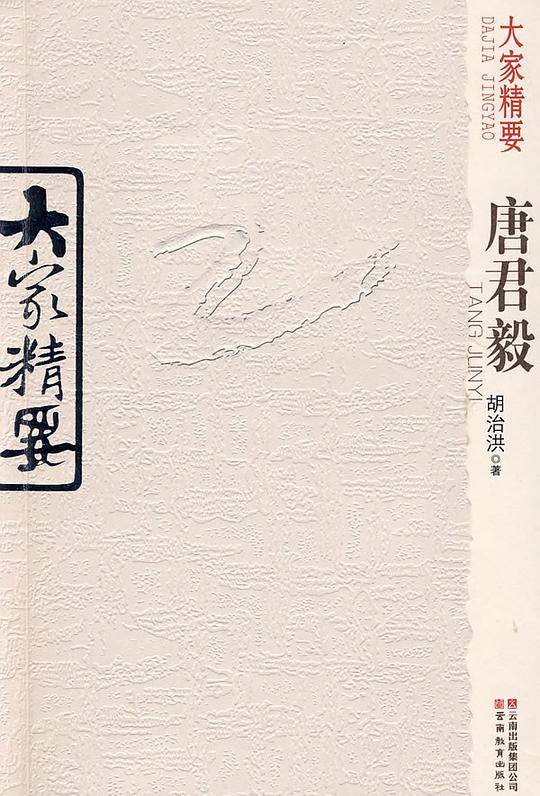 大家精要
DAJIA JINGYAO
唐君毅
TANG JUNYI
胡治洪◎著
大家精要
云南出版集团公司
云南教育出版社